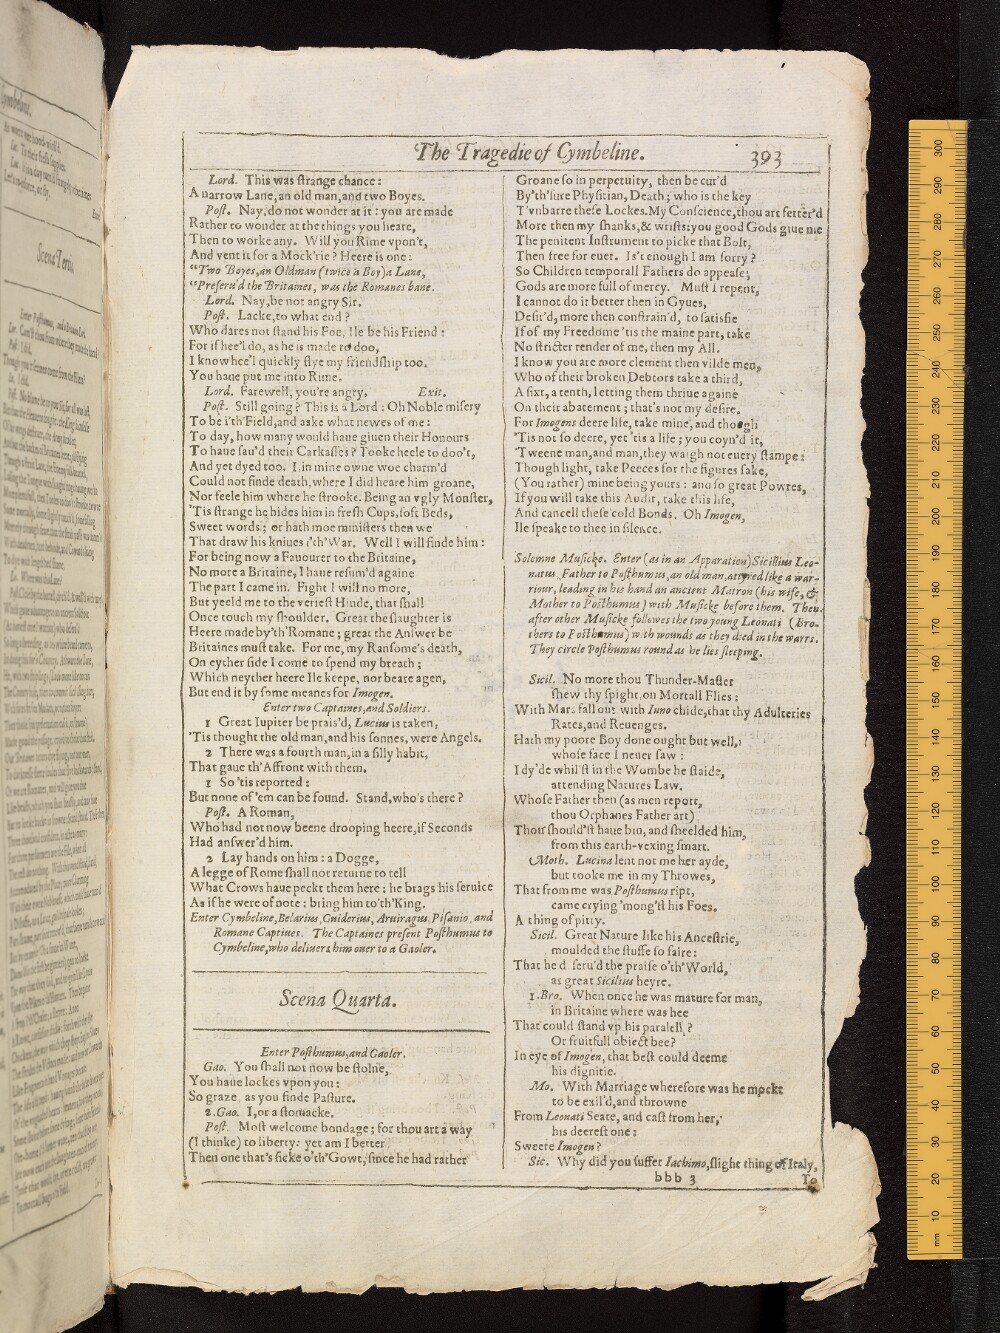 The Tragedie of Cymbeline. 393
Lord. This was ſtrange chance:
A narrow Lane, an old man, and two Boyes.
Poſt. Nay, do not wonder at it: you are made
Rather to wonder at the things you heare,
Then to worke any. Will you Rime vpon't,
And vent it for a Mock'rie? Heere is one:
"Two Boyes, an Oldman (twice a Boy) a Lane,
"Preſeru'd the Britaines, was the Romanes bane.
Lord. Nay, be not angry Sir.
Poſt. Lacke, to what end?
Who dares not ſtand his Foe, Ile be his Friend:
For if hee'l do, as he is made to doo,
I know hee'l quickly flye my friendſhip too.
You haue put me into Rime.
Lord. Farewell, you're angry. Exit.
Poſt. Still going? This is a Lord: Oh Noble miſery
To be i'th'Field, and aske what newes of me:
To day, how many would haue giuen their Honours
To haue ſau'd their Carkaſſes? Tooke heele to doo't,
And yet dyed too. I, in mine owne woe charm'd
Could not finde death, where I did heare him groane,
Nor feele him where he ſtrooke. Being an vgly Monſter,
'Tis ſtrange he hides him in freſh Cups, ſoft Beds,
Sweet words; or hath moe miniſters then we
That draw his kniues i'th'War. Well I will finde him:
For being now a Fauourer to the Britaine,
No more a Britaine, I haue reſum'd againe
The part I came in. Fight I will no more,
But yeeld me to the verieſt Hinde, that ſhall
Once touch my ſhoulder. Great the ſlaughter is
Heere made by'th'Romane; great the Anſwer be
Britaines muſt take. For me, my Ranſome's death,
On eyther ſide I come to ſpend my breath;
Which neyther heere Ile keepe, nor beare agen,
But end it by ſome meanes for Imogen.
Enter two Captaines, and Soldiers.
1 Great Iupiter be prais'd, Lucius is taken,
'Tis thought the old man, and his ſonnes, were Angels.
2 There was a fourth man, in a ſilly habit,
That gaue th'Affront with them.
1 So 'tis reported:
But none of 'em can be found. Stand, who's there?
Poſt. A Roman,
Who had not now beene drooping heere, if Seconds
Had anſwer'd him.
2 Lay hands on him: a Dogge,
A legge of Rome ſhall not returne to tell
What Crows haue peckt them here: he brags his ſeruice
As if he were of note: bring him to'th'King.
Enter Cymbeline, Belarius, Guiderius, Aruiragus, Piſanio, and
Romane Captiues. The Captaines preſent Poſthumus to
Cymbeline, who deliuers him ouer to a Gaoler.
Scena Quarta.
Enter Poſthumus, and Gaoler.
Gao. You ſhall not now be ſtolne,
You haue lockes vpon you:
So graze, as you finde Paſture.
2. Gao. I, or a ſtomacke.
Poſt. Moſt welcome bondage; for thou art a way
(I thinke) to liberty: yet am I better
Then one that's ſicke o'th'Gowt, ſince he had rather
Groane ſo in perpetuity, then be cur'd
By'th'ſure Phyſitian, Death; who is the key
T'vnbarre theſe Lockes. My Conſcience, thou art fetter'd
More then my ſhanks, & wriſts: you good Gods giue me
The penitent Inſtrument to picke that Bolt,
Then free for euer. Is't enough I am ſorry?
So Children temporall Fathers do appeaſe;
Gods are more full of mercy. Muſt I repent,
I cannot do it better then in Gyues,
Deſir'd, more then conſtrain'd, to ſatisfie
If of my Freedome 'tis the maine part, take
No ſtricter render of me, then my All.
I know you are more clement then vilde men,
Who of their broken Debtors take a third,
A ſixt, a tenth, letting them thriue againe
On their abatement; that's not my deſire.
For Imogens deere life, take mine, and though
'Tis not ſo deere, yet 'tis a life; you coyn'd it,
'Tweene man, and man, they waigh not euery ſtampe:
Though light, take Peeces for the figures ſake,
(You rather) mine being yours: and ſo great Powres,
If you will take this Audit, take this life,
And cancell theſe cold Bonds. Oh Imogen,
Ile ſpeake to thee in ſilence.
Solemne Muſicke. Enter (as in an Apparation) Sicillius Leo-
natus, Father to Poſthumus, an old man, attyred like a war-
riour, leading in his hand an ancient Matron (his wife, &
Mother to Poſthumus) with Muſicke before them. Then
after other Muſicke followes the two young Leonati (Bro-
thers to Poſthumus) with wounds as they died in the warrs.
They circle Poſthumus round as he lies ſleeping.
Sicil. No more thou Thunder-Maſter
ſhew thy ſpight, on Mortall Flies:
With Mars fall out with Iuno chide, that thy Adulteries
Rates, and Reuenges.
Hath my poore Boy done ought but well,
whoſe face I neuer ſaw:
I dy'de whil'ſt in the Wombe he ſtaide,
attending Natures Law.
Whoſe Father then (as men report,
thou Orphanes Father art)
Thou ſhould'ſt haue bin, and ſheelded him,
from this earth-vexing ſmart.
Moth. Lucina lent not me her ayde,
but tooke me in my Throwes,
That from me was Poſthumus ript,
came crying 'mong'ſt his Foes.
A thing of pitty.
Sicil. Great Nature like his Anceſtrie,
moulded the ſtuffe ſo faire:
That he d ſeru'd the praiſe o'th'World,
as great Sicilius heyre.
1. Bro. When once he was mature for man,
in Britaine where was hee
That could ſtand vp his paralell?
Or fruitfull obiect bee?
In eye of Imogen, that beſt could deeme
his dignitie.
Mo. With Marriage wherefore was he mockt
to be exil'd, and throwne
From Leonati Seate, and caſt from her,
his deereſt one:
Sweete Imogen?
Sic. Why did you ſuffer Iachimo, ſlight thing of Italy,
bbb 3 To
3